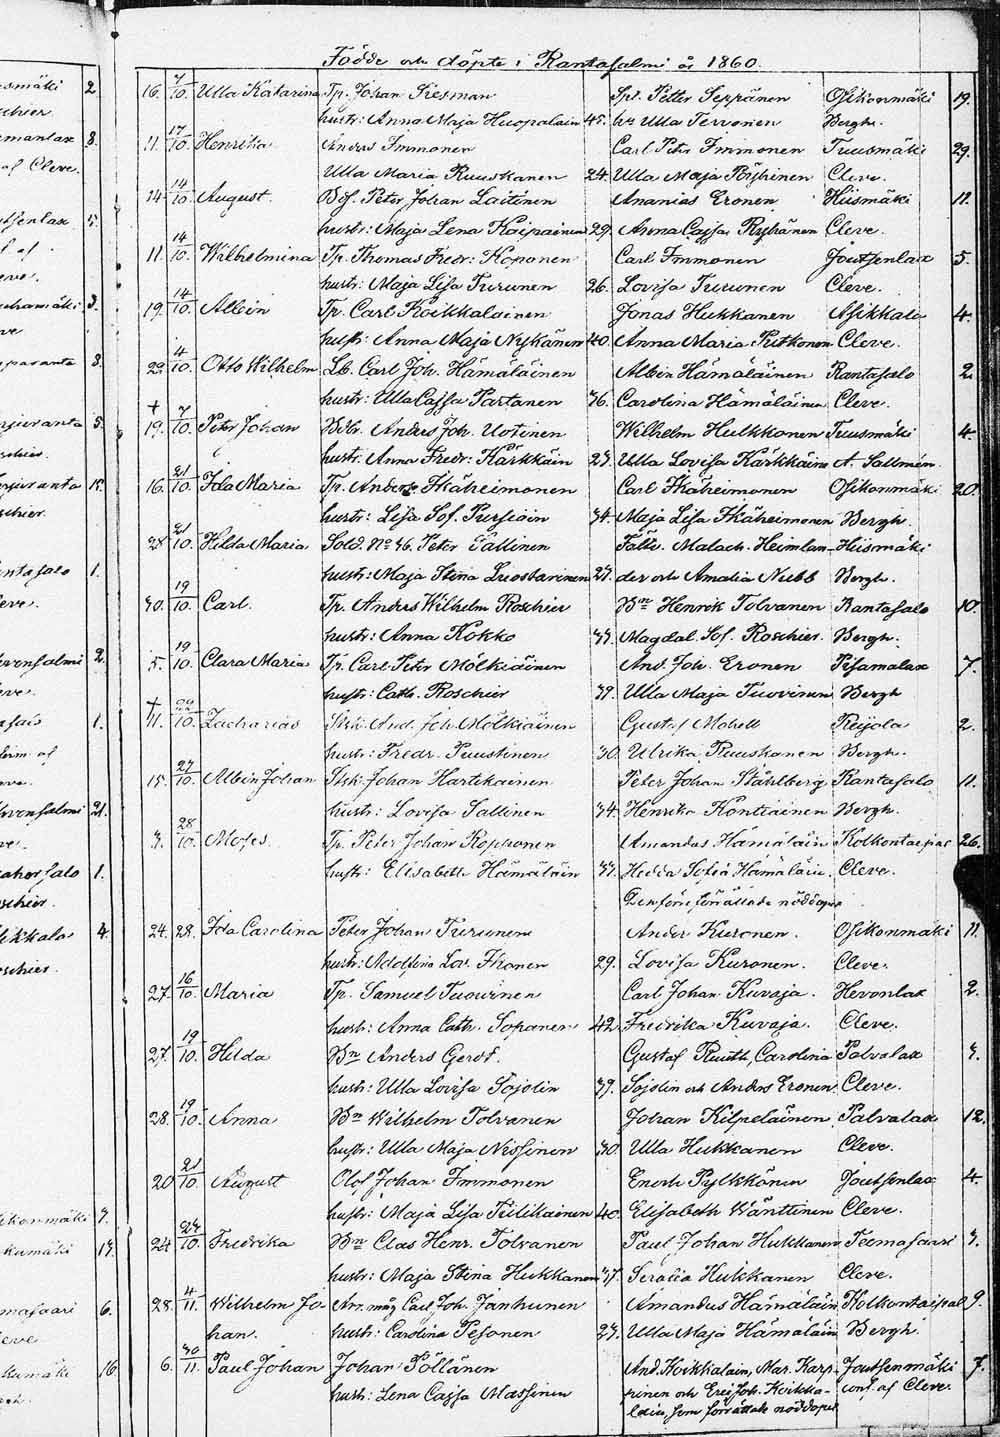 Födde och döpte i Rantasalmi år 1860.
16. 7/10. Ulla Katarina Tp. Johan Kiesman Spt. Petter Seppänen Osikonmäki 19.
hustr: Anna Maja Huopalain 45. Ulla Tervonen Bergh.
11. 17/10. Henrika Anders Immonen Carl Petr Immonen Tuusmäki 29.
Ulla Maria Ruuskanen 24. Ulla Maja Pöyhinen Cleve.
14. 14/10. August. Peter Johan Laitinen Ananias Eronen Hiismäki 11.
hustr: Maja Lena Kaipainen 29. Anna Cajsa Cleve.
11. 14/10. Wilhelmina Tp. Thomas Fredr: Koponen Carl Immonen Joutsenlax 5.
hustr: Maja Lisa Turunen 26. Lovisa Turunen Cleve.
19. 14/10. Albin Tp. Carl Koikkalainen Jonas Hukkanen Asikkala 4.
hustr: Anna Maja Nykänen 40. Anna Maria Putkonen Cleve.
22. 4/10. Otto Wilhelm Lb. Carl Joh. Hämäläinen Albin Hämäläinen Rantasalo 2.
hustr: Ulla Cajsa Partanen 36. Carolina Hämäläinen Cleve.
† 19. 7/10. Peter Johan Anders Joh. Uotinen Wilhelm Hulkkonen Tuusmäki 4.
hustr. Anna Fredr: Kärkkäin 27. Ulla Lovisa Kärkkäine A. Sallmén.
16. 21/10. Ida Maria Tp. Anders Ikäheimonen Carl Ikäheimonen Osikonmäki 20.
hustr: Lisa Sof. Pursiain 34. Maja Lisa Ikäheimonen Bergh.
28. 21/10. Hilda Maria Sold. No 46. Peter Tallinen Fältv. Malach. Heimlan- Hiismäki
hustr: Maja Stina Luostarinen 27. der och Amalia Nubb Bergh.
30. 19/10. Carl. Tp. Anders Wilhelm Roschier Bn Henrik Tolvanen Rantasalo 10.
hustr: Anna Kokko 33. Magdal. Sof. Roschier. Bergh.
5. 19/10. Clara Maria Tp. Carl Peter Mölkiäinen And. Joh. Eronen Pisamalax 7.
hustr: Cath. Roschier 39. Ulla Maja Tuovinen Bergh
† 11. 22/10. Zacharias And. Joh Mölkiäinen Gustaf Mohell Reijola 2.
hustr: Fredr. Puustinen 30. Ulrika Ruuskanen Bergh.
15. 27/10. Albin Johan Johan Hartikainen Peter Johan Ståhlberg Rantasalo 11.
hustr: Lovisa Sallinen 34. Henrika Kontiainen Bergh.
3. 28/10. Moses. Tp. Peter Johan Kopponen Amandus Hämäläin Kolkontaipal 26.
hustr: Elisabeth Hämäläin 33. Hedda Sofia Hämäläin. Cleve.
Den förre förrättade nöddopet
24. 28. Ida Carolina Peter Johan Turunen Ander Kuronen. Osikonmäki 11.
hustr: Adolfina Lov. Ikonen 29. Lovisa Kuronen. Cleve.
27. 16/10. Maria Tp. Samuel Tuovinen Carl Johan Kuvaja. Hevonlax 2.
hustr: Anna Cath. Sopanen 42. Fredrika Kuvaja. Cleve.
27. 19/10. Hilda Bn Anders Gerdt. Gustaf Ruuth, Carolina Palvalax 3.
hustr: Ulla Lovisa Sojolin 39. Sojolin och Anders Eronen Cleve.
28. 19/10. Anna Bn Wilhelm Tolvanen Johan Kilpeläinen Palvalax 12.
hustr: Ulla Maja Nissinen 30. Ulla Hukkanen Cleve.
20 21/10. August Olof Johan Immonen Enoch Pylkkönen Joutsenlax 4.
hustr: Maja Lisa Tiilikainen 40. Elisabeth Wänttinen Cleve.
24 27/10. Fredrika Bn Clas Henr. Tolvanen Paul Johan Hukkanen Teemasaari 3.
hustr: Maja Stina Hukkanen 37. Serafia Hukkanen Cleve.
28. 4/11. Wilhelm Jo Arr. måg Carl Joh. Janhunen Amandus Hämäläin Kolkontaipal 9.
han. hustr: Carolina Pesonen 27. Ulla Maja Hämäläin Bergh.
6. 30/11. Paul Johan Johan Pöllänen And. Koikkalain, Mar. Karp- Joutsenmäki 7.
hustr: Lena Cajsa Massinen pinen och Joh. Koikka- conf. af Cleve.
lain, som förrättade nöddopet